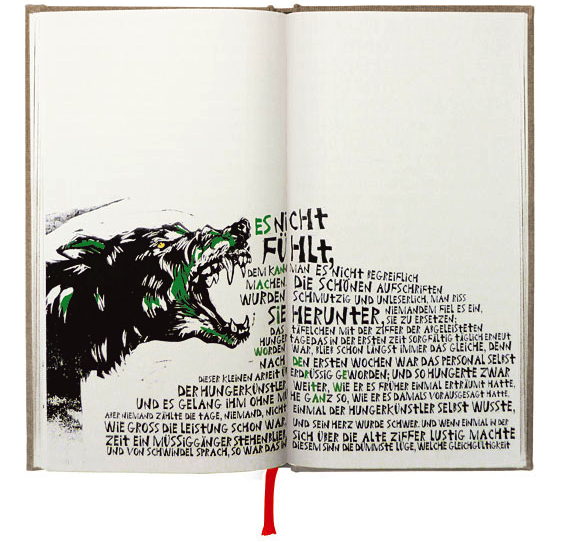 ES NICHT
FÜHLT,
DEM KANN MAN ES NICHT BEGREIFLICH
MACHEN. DIE SCHÖNEN AUFSCHRIFTEN
WURDEN SCHMUTZIG UND UNLESERLICH, MAN RISS
SIE HERUNTER, NIEMANDEM FIEL ES EIN,
SIE ZU ERSETZEN;
DAS TÄFELCHEN MIT DER ZIFFER DER ABGELEISTETEN
HUNGERTAGE, DAS IN DER ERSTEN ZEIT SORGFÄLTIG TÄGLICH ERNEUT
WORDEN WAR, BLIEB SCHON LÄNGST IMMER DAS GLEICHE, DENN
NACH DEN ERSTEN WOCHEN WAR DAS PERSONAL SELBST
DIESER KLEINEN ARBEIT ÜBERDRÜSSIG GEWORDEN; UND SO HUNGERTE ZWAR
DER HUNGERKÜNSTLER WEITER, WIE ER ES FRÜHER EINMAL ERTRÄUMT HATTE,
UND ES GELANG IHM OHNE MÜHE GANZ SO, WIE ER ES DAMALS VORAUSGESAGT HATTE,
ABER NIEMAND ZÄHLTE DIE TAGE, NIEMAND, NICHT EINMAL DER HUNGERKÜNSTLER SELBST WUSSTE,
WIE GROSS DIE LEISTUNG SCHON WAR, UND SEIN HERZ WURDE SCHWER. UND WENN EINMAL IN DER
ZEIT EIN MÜSSIGGÄNGER STEHENBLIEB, SICH ÜBER DIE ALTE ZIFFER LUSTIG MACHTE
UND VON SCHWINDEL SPRACH, SO WAR DAS IN DIESEM SINN DIE DÜMMSTE LÜGE, WELCHE GLEICHGÜLTIGKEIT